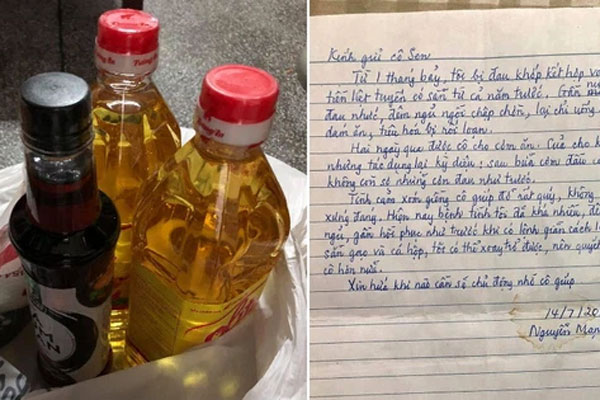 Tường An
Tường An
Kính gửi cô Sen
Từ 1 tháng bảy, tôi bị đau khớp kết hợp vo
tiền liệt tuyến có sẵn từ cả năm trước. Gần
đau nhức, đêm ngủ ngồi chập chờn, lại chỉ uống
đạm ăn, tiêu hóa bị rối loạn.
Hai ngày qua được cô cho cơm ăn. Của cho k
nhưng tác dụng lại kỳ diệu: sau bữa cơm đầu
không còn số những cơn đau như trước.
Tình cảm xóm giềng cô giúp đỡ rất quý, không
xứng đáng. Hiện nay bệnh tình tôi đã khá nhiều, đ
ngủ, gần hồi phục như trước khi có lệnh giãn cách l
sẵn gạo và cá hộp, tôi có thể xoay trở được, nên quyế
cô hơn nữa.
Xin hứa khi nào cần sẽ chủ động nhờ cô giúp
14/7/20
Nguyễn Mạn